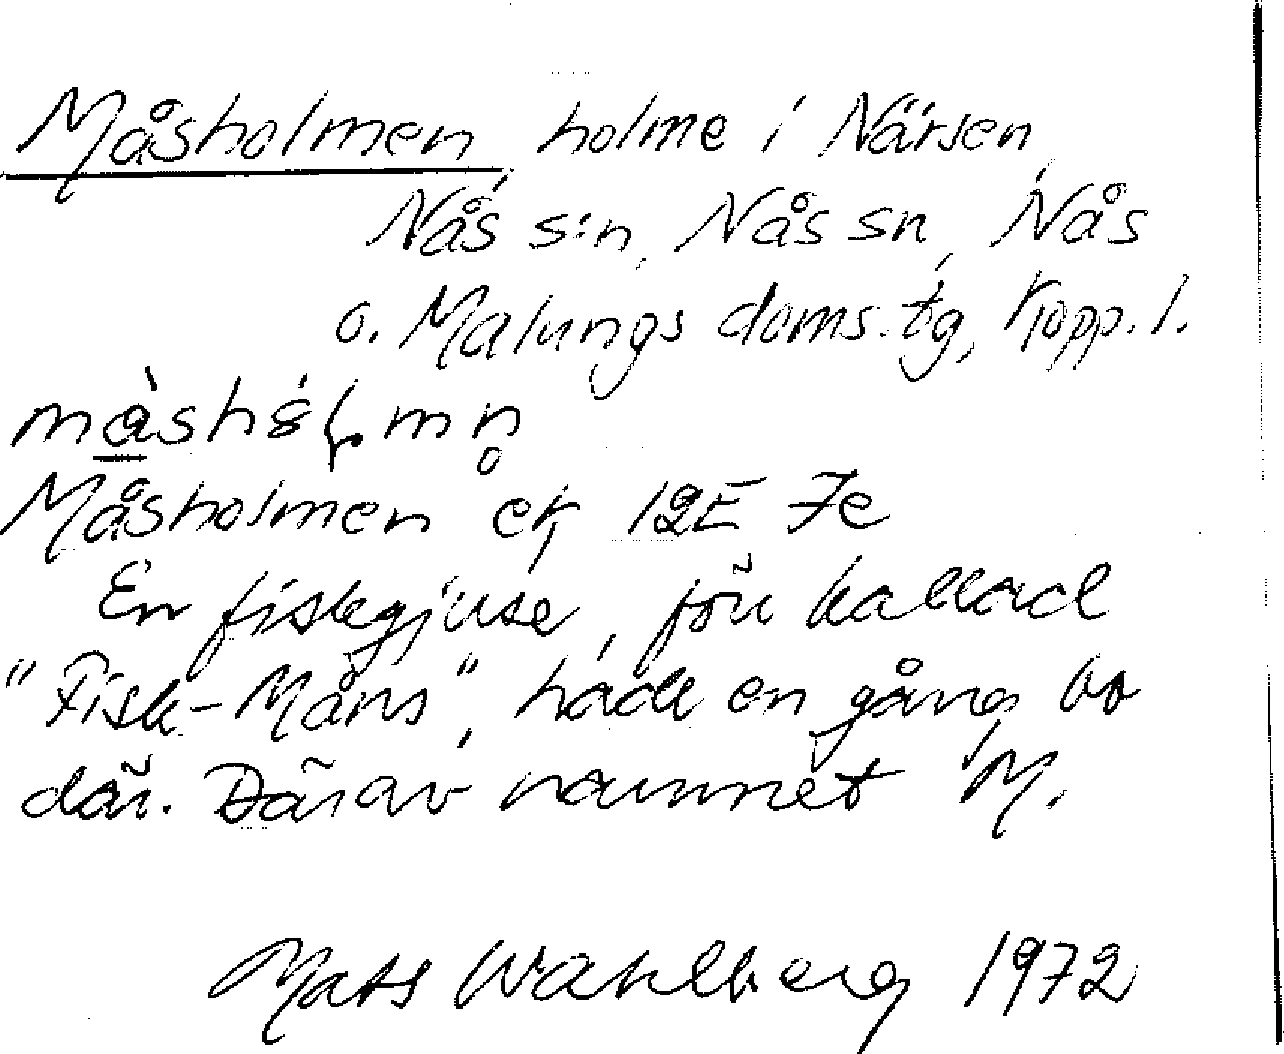 Måsholmen, holme i Närsen,
Nås s:n, Nås sn, Nås
o. Malungs doms.tg, Kopp. l.
Måsholmen ek 12E 7e
En fiskgjuse, förr kallad
"Fisk-Måns", hade en gång bo
där. Därav namnet M.
Mats Wahlberg 1972